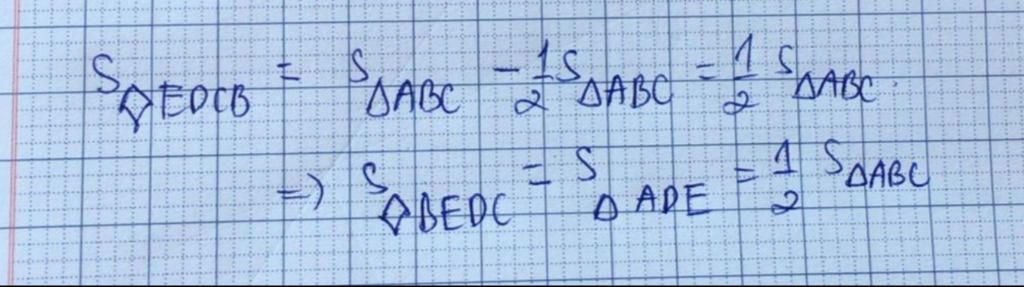 S◇EDCB = S△ABC - 1/2 S△ABC = 1/2 S△ABC.
=> S◇BEDC = S△ADE = 1/2 S△ABC